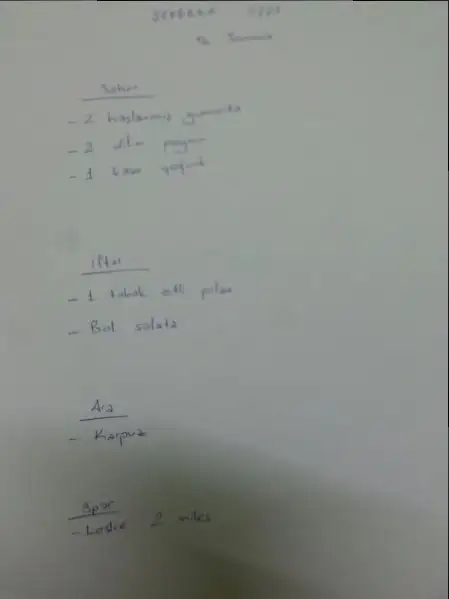 Sahur
- 2 haşlanmış yumurta
- 2 dilim peynir
- 1 kase yoğurt
iftar
- 1 tabak etli pilav
- Bol salata
Ara
- Karpuz
Spor
- 2 miles